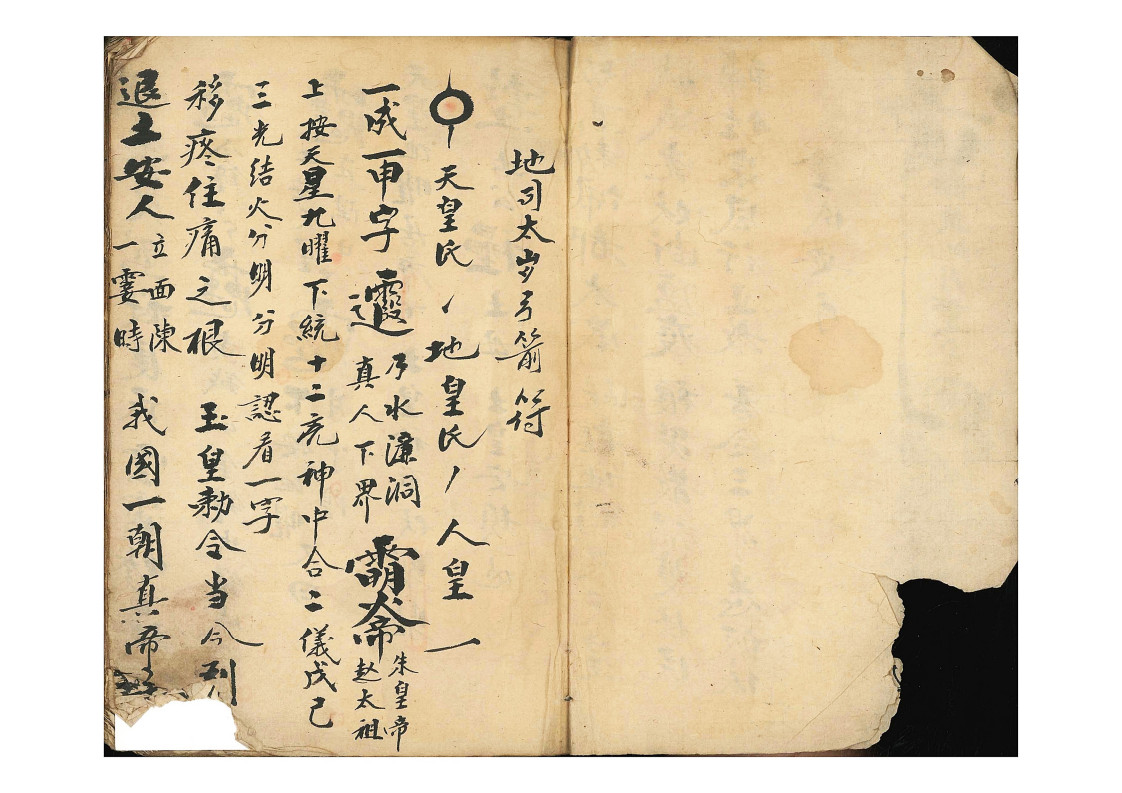 地司太岁弓箭符
天皇氏丿地皇氏丿人皇一
一成一申字 乃水濂洞 真人下界 朱皇帝 赵太祖
上按天星九曜下統十二亮神中合二儀戊己
三光结火分明分明認看一字
移疼住痛之根 玉皇勅令当今
退土安人 立面陳 一霎時 我國一朝真帝